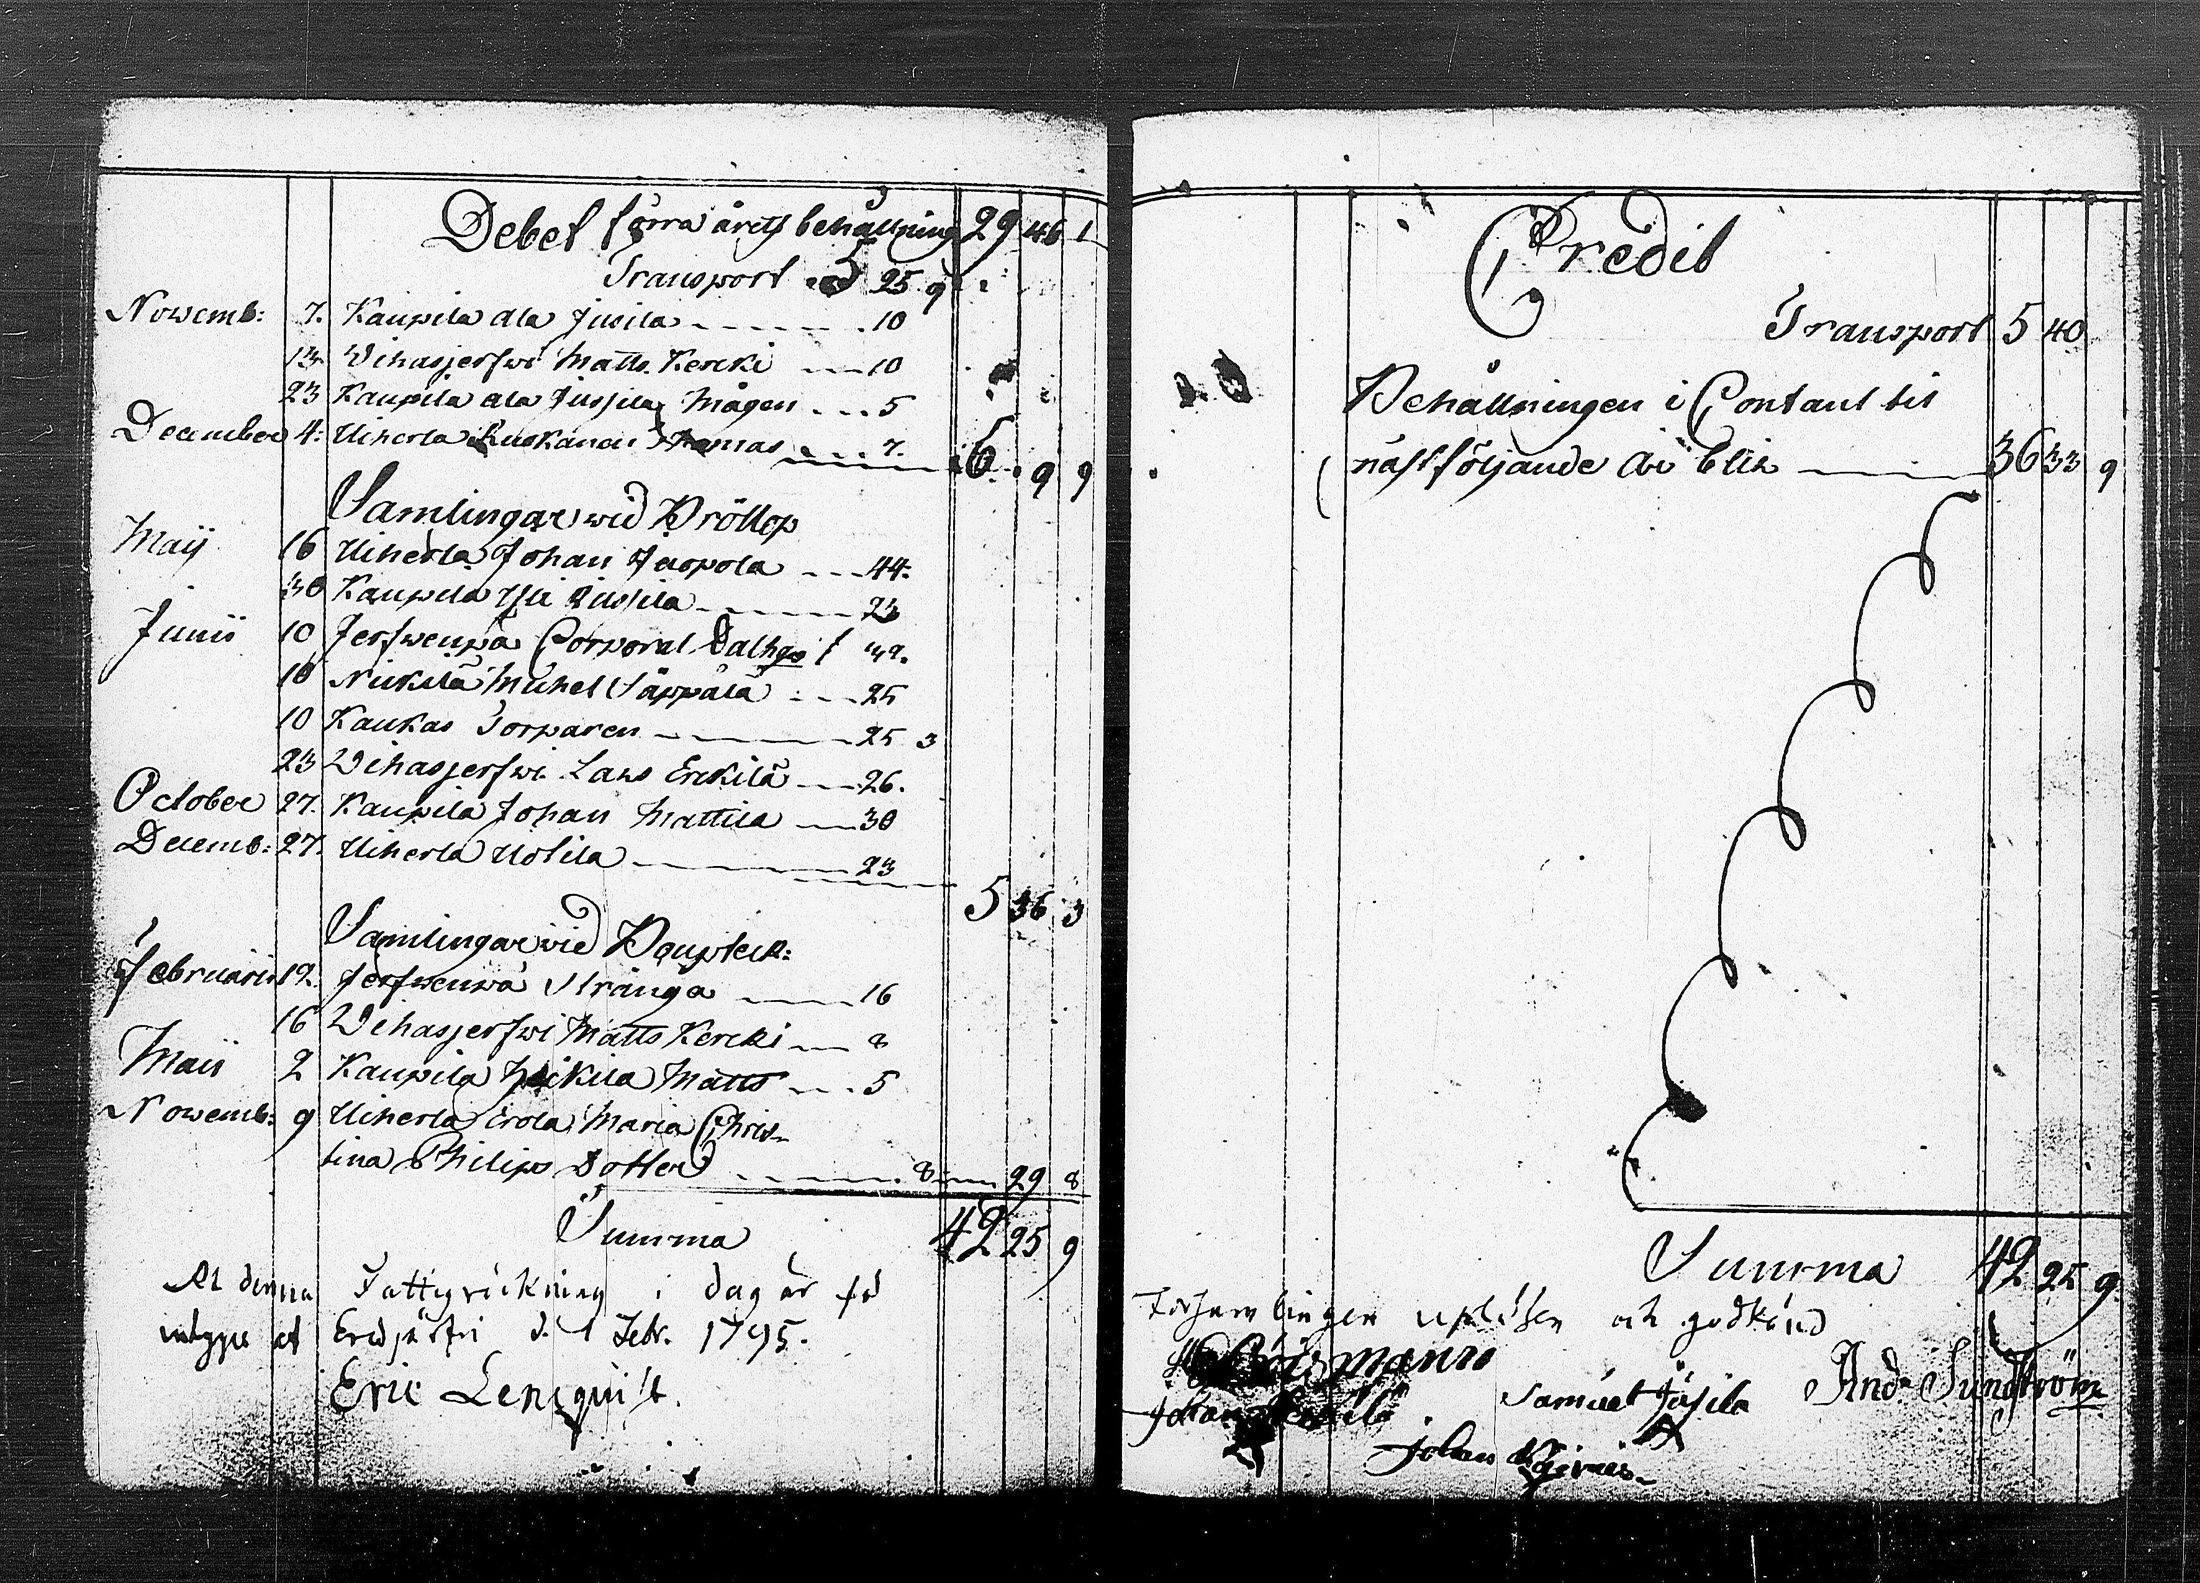 Debet förra årets behållning 29 46 1
Transport 5 25 9
Novemb: 7. Kaupila ala Jusila 10
13 Wihasjerfwi Matts Kercki 10
23 Kaupila ala Jussila Mågen 5
December 4: Uiherla Thomas 7. 6 9 9
Samlingar wid Bröllop
Maij 16 Uiherla Johan Jaopola 44.
30 Kaupila Yli Jussila 23
Junii 10 Jerfwenpä Corporal
10 Nickilä Michel Säppälä 25
10 Kaukas Torparen 25 3
23 Wihasjerfwi Lars Erckilä 26.
October 27. Kaupila Johan Mattila 30
Decemb: 27. Uiherla Uotila 23
5 36 3
Samlingar wid
Februarii 12. Jerfwenpä Stränga 16
16 Wihasjerfwi Matts Kercki 8
Maii 2 Kaupila Heikila Matts 5
Novemb: 9 Uiherla Erola Maria Chris-
tina Philips Dotter 8 29 8
Summa 42 25 9
At denna Fattigräckning i dag är på
d. 1 Febr. 1795.
Eric Lenqvist.
Credit
Transport 5 40
Behållningen i Contant til
näst följande År blir 36 33 9
Summa 42 25 9.
upläsen och godkänd
Samuel Jösila And. Sundström
Johan